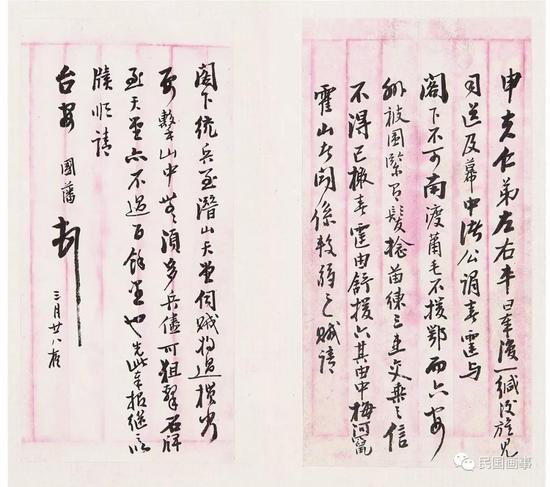 申夫仁弟左右本日奉復一緘後旋見
司送及幕中諸公謂春霆與
閣下不可南渡毛不援鄂而六安
被圍緊有髮捻苗練三交乘之信
不得已檄春霆由舒援六其由中梅河竄
霍山者聞係較弱之賊請
閣下統兵至潛山天堂伺賊將過橫出
要擊山中無須多兵儘可狙擊石牌
至天堂亦不過百餘里也先此奉報繼以
牘順請
台安 國藩 頓
三月廿八夜
民国画事